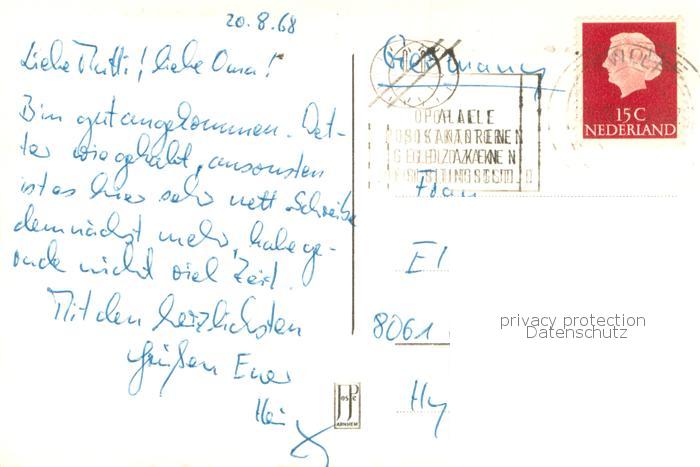 20.8.68
Liebe Mutti! Liebe Oma!
Bin gut angekommen. Wet-
ter wie gehabt, ansonsten
ist es hier sehr nett. Schreibe
demnächst mehr, habe ge-
rade nicht viel Zeit.
Mit den herzlichsten
Grüßen Euer
Germany
15 C
NEDERLAND
Frau
El
8061
privacy protection
Datenschutz
Hy
ARNHEM